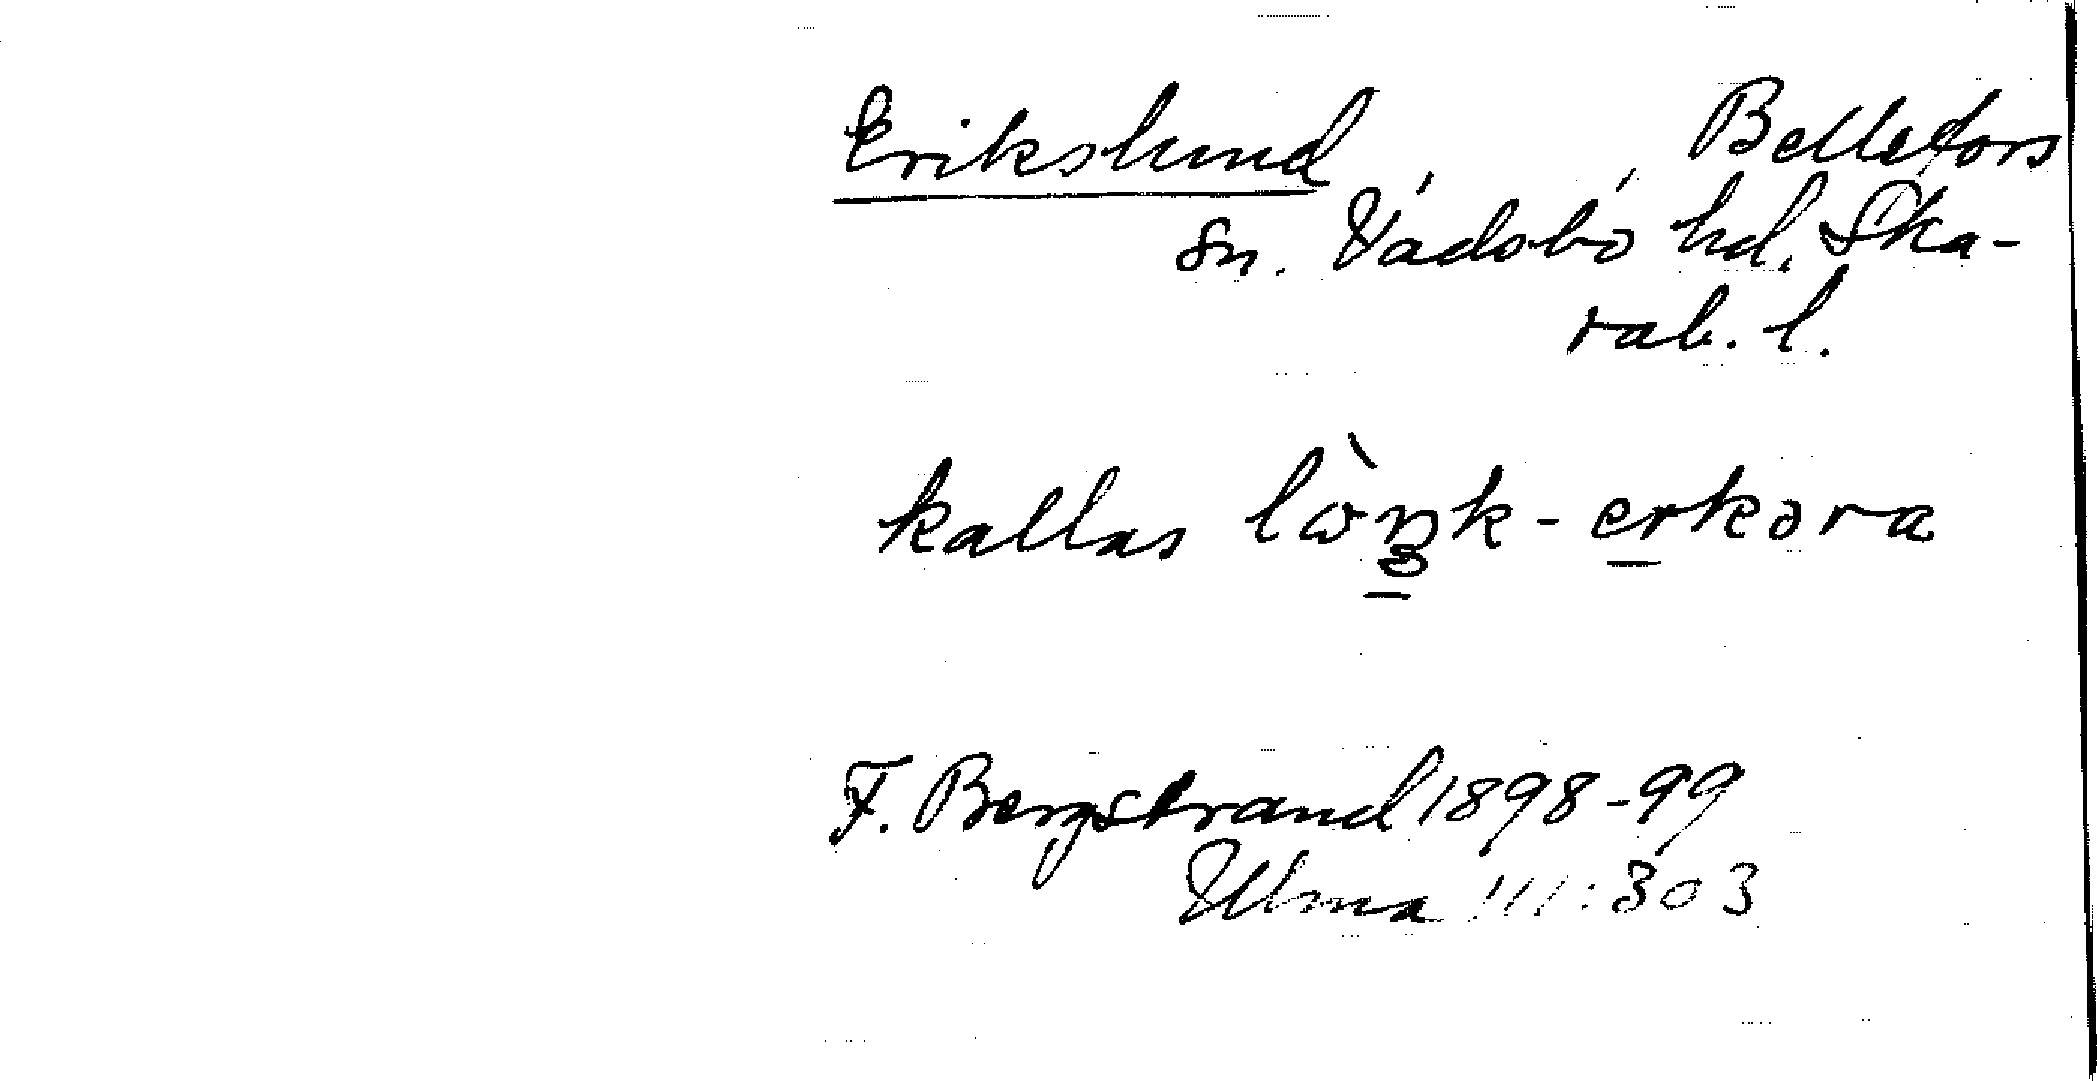 Erikslund, Bellefors
sn. Vadsbo hd, Ska-
rab. l.
kallas lὼŋk-erkəra
F. Bergstrand 1898-99
Ulma 111:303